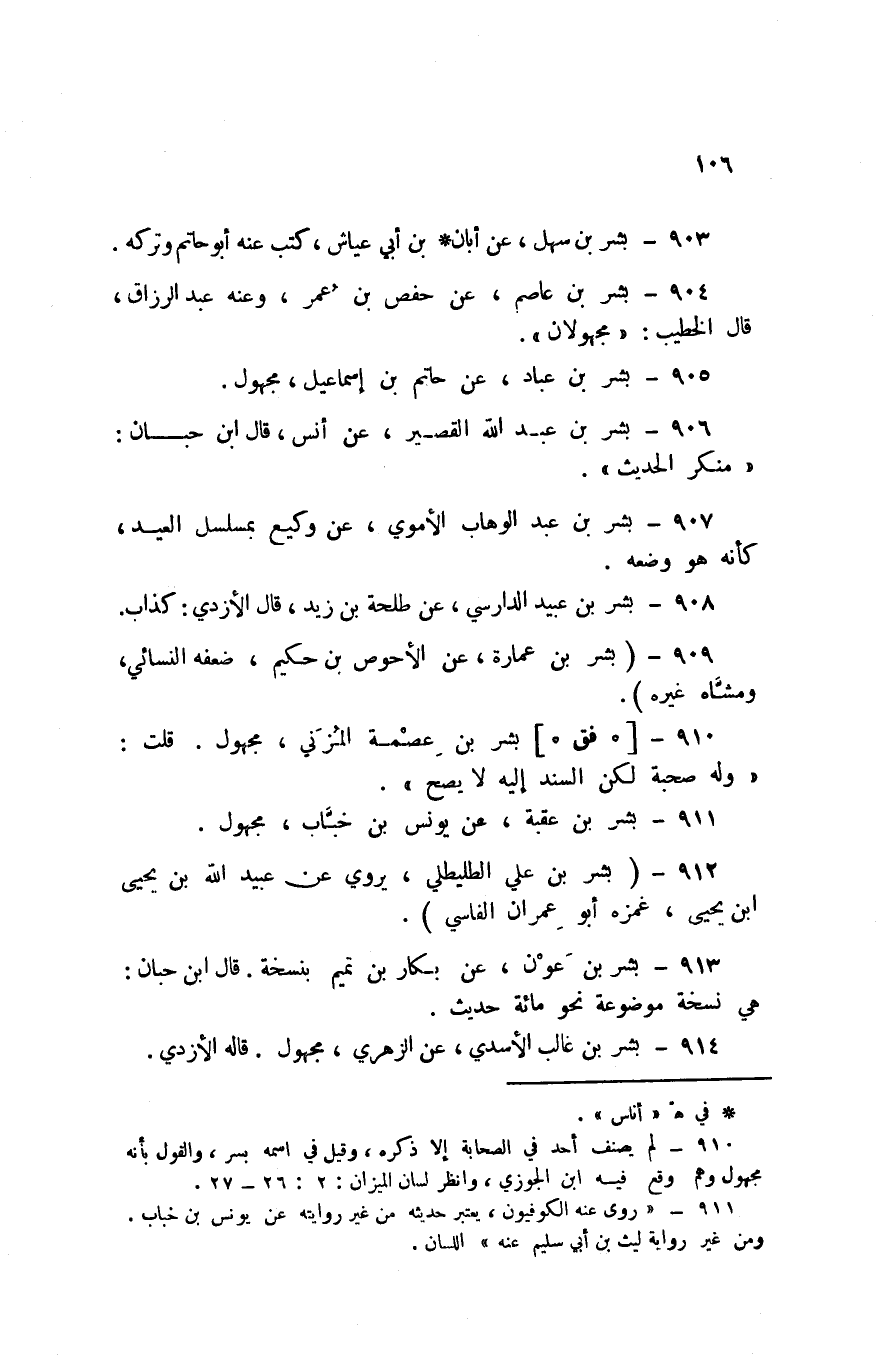 ١٠٦
٩٠٣ – بشر بن سهل ، عن أبان* بن أبي عياش ، كتب عنه أبو حاتم وتركه .
٩٠٤ – بشر بن عاصم ، عن حفص بن عُمر ، وعنه عبد الرزاق ،
قال الخطيب : « مجهولان » .
٩٠٥ – بشر بن عباد ، عن حاتم بن إسماعيل ، مجهول .
٩٠٦ – بشر بن عبـد الله القصـير ، عن أنس ، قال ابن حبـــان :
« منكر الحديث » .
٩٠٧ – بشر بن عبد الوهاب الأموي ، عن وكيع بمسلسل العيـد ،
كأنه هو وضعه .
٩٠٨ – بشر بن عبيد الدارسي ، عن طلحة بن زيد ، قال الأزدي : كذاب.
٩٠٩ – ( بشر بن عمارة ، عن الأحوص بن حكيم ، ضعفه النسائي ،
ومشَّاه غيره ) .
٩١٠ – [ ٥ فق ٥ ] بشر بن عِصْمـة المُزَني ، مجهول . قلت :
« وله صحبة لكن السند إليه لا يصح » .
٩١١ – بشر بن عقبة ، عن يونس بن خبَّاب ، مجهول .
٩١٢ – ( بشر بن علي الطليطلي ، يروي عن عبيد الله بن يحيى
ابن يحيى ، غمزه أبو عِمران الفاسي ) .
٩١٣ – بشر بن عَوْن ، عن بـكار بن تميم بنسخة . قال ابن حبان :
هي نسخة موضوعة نحو مائة حديث .
٩١٤ – بشر بن غالب الأسدي ، عن الزهري ، مجهول . قاله الأزدي .
* في هـ « أناس » .
٩١٠ – لم يصنف أحد في الصحابة إلا ذكره ، وقيل في اسمه بسر ، والقول بأنه
مجهول وهم وقع فيـه ابن الجوزي ، وانظر لسان الميزان : ٢ : ٢٦ – ٢٧ .
٩١١ – « روى عنه الكوفيون ، يعتبر حديثه من غير روايته عن يونس بن خباب .
ومن غير رواية ليث بن أبي سليم عنه » اللسان .